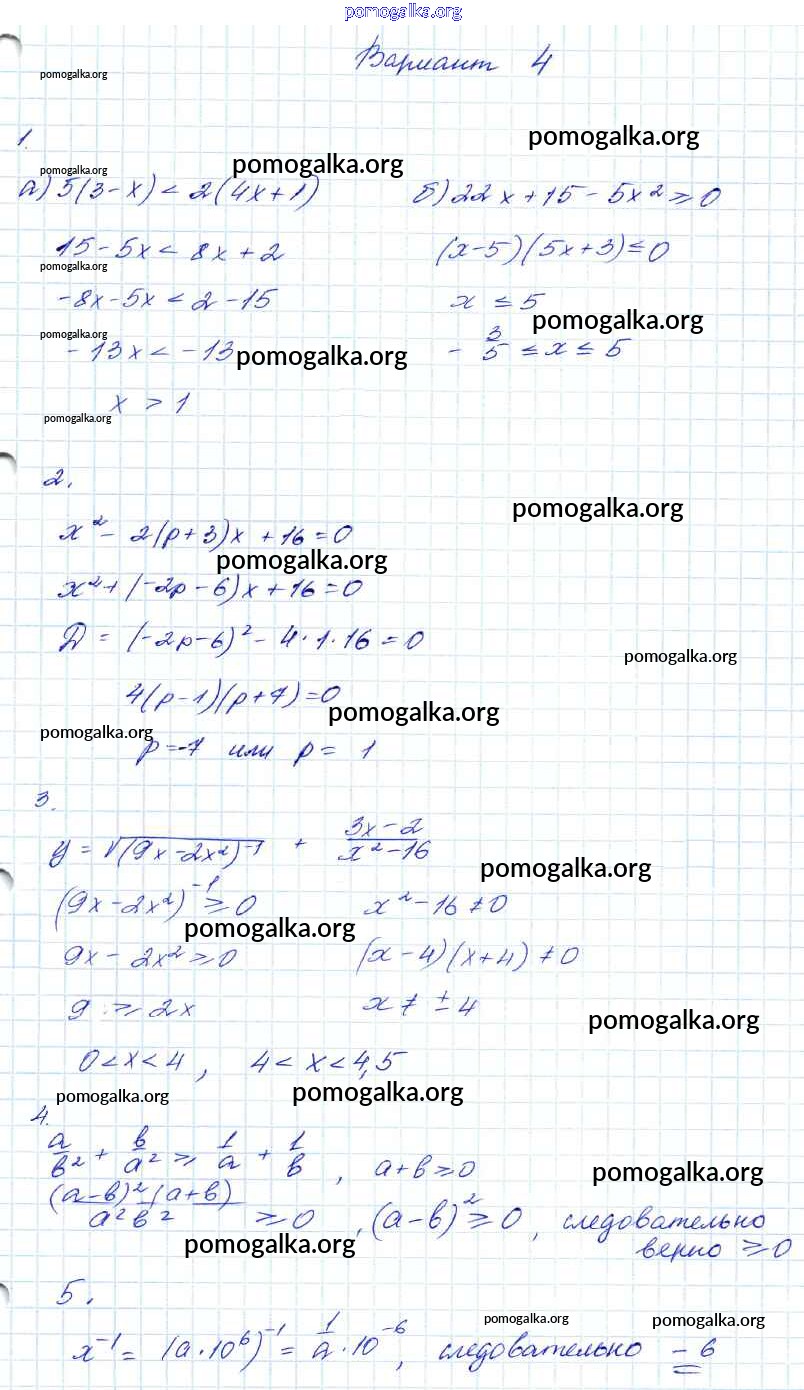 pomogalka.org
Вариант 4
pomogalka.org
1.
pomogalka.org
pomogalka.org
pomogalka.org
а) 5(3-x) < 2(4x+1)
б) 22x + 15 - 5x² ≥ 0
15 - 5x < 8x + 2
(x-5)(5x+3) ≤ 0
pomogalka.org
-8x - 5x < 2 - 15
x ≤ 5
pomogalka.org
pomogalka.org
-13x < -13
- 3/5 ≤ x ≤ 5
pomogalka.org
x > 1
pomogalka.org
2.
pomogalka.org
x² - 2(p+3)x + 16 = 0
pomogalka.org
x² + (-2p-6)x + 16 = 0
D = (-2p-6)² - 4·1·16 = 0
pomogalka.org
4(p-1)(p+7) = 0
pomogalka.org
pomogalka.org
p = -7 или p = 1
3.
y = √(9x-2x²)⁻¹ + (3x-2)/(x²-16)
pomogalka.org
(9x-2x²)⁻¹ ≥ 0
x² - 16 ≠ 0
pomogalka.org
9x - 2x² ≥ 0
(x-4)(x+4) ≠ 0
9 ≥ 2x
x ≠ ± 4
pomogalka.org
0 < x < 4, 4 < x < 4,5
pomogalka.org
pomogalka.org
4.
a/b² + b/a² ≥ 1/a + 1/b, a+b ≥ 0
pomogalka.org
(a-b)²(a+b)/a²b² ≥ 0, (a-b)² ≥ 0, следовательно
верно ≥ 0
pomogalka.org
5.
pomogalka.org
pomogalka.org
x⁻¹ = (a·10⁶)⁻¹ = 1/a · 10⁻⁶, следовательно - 6